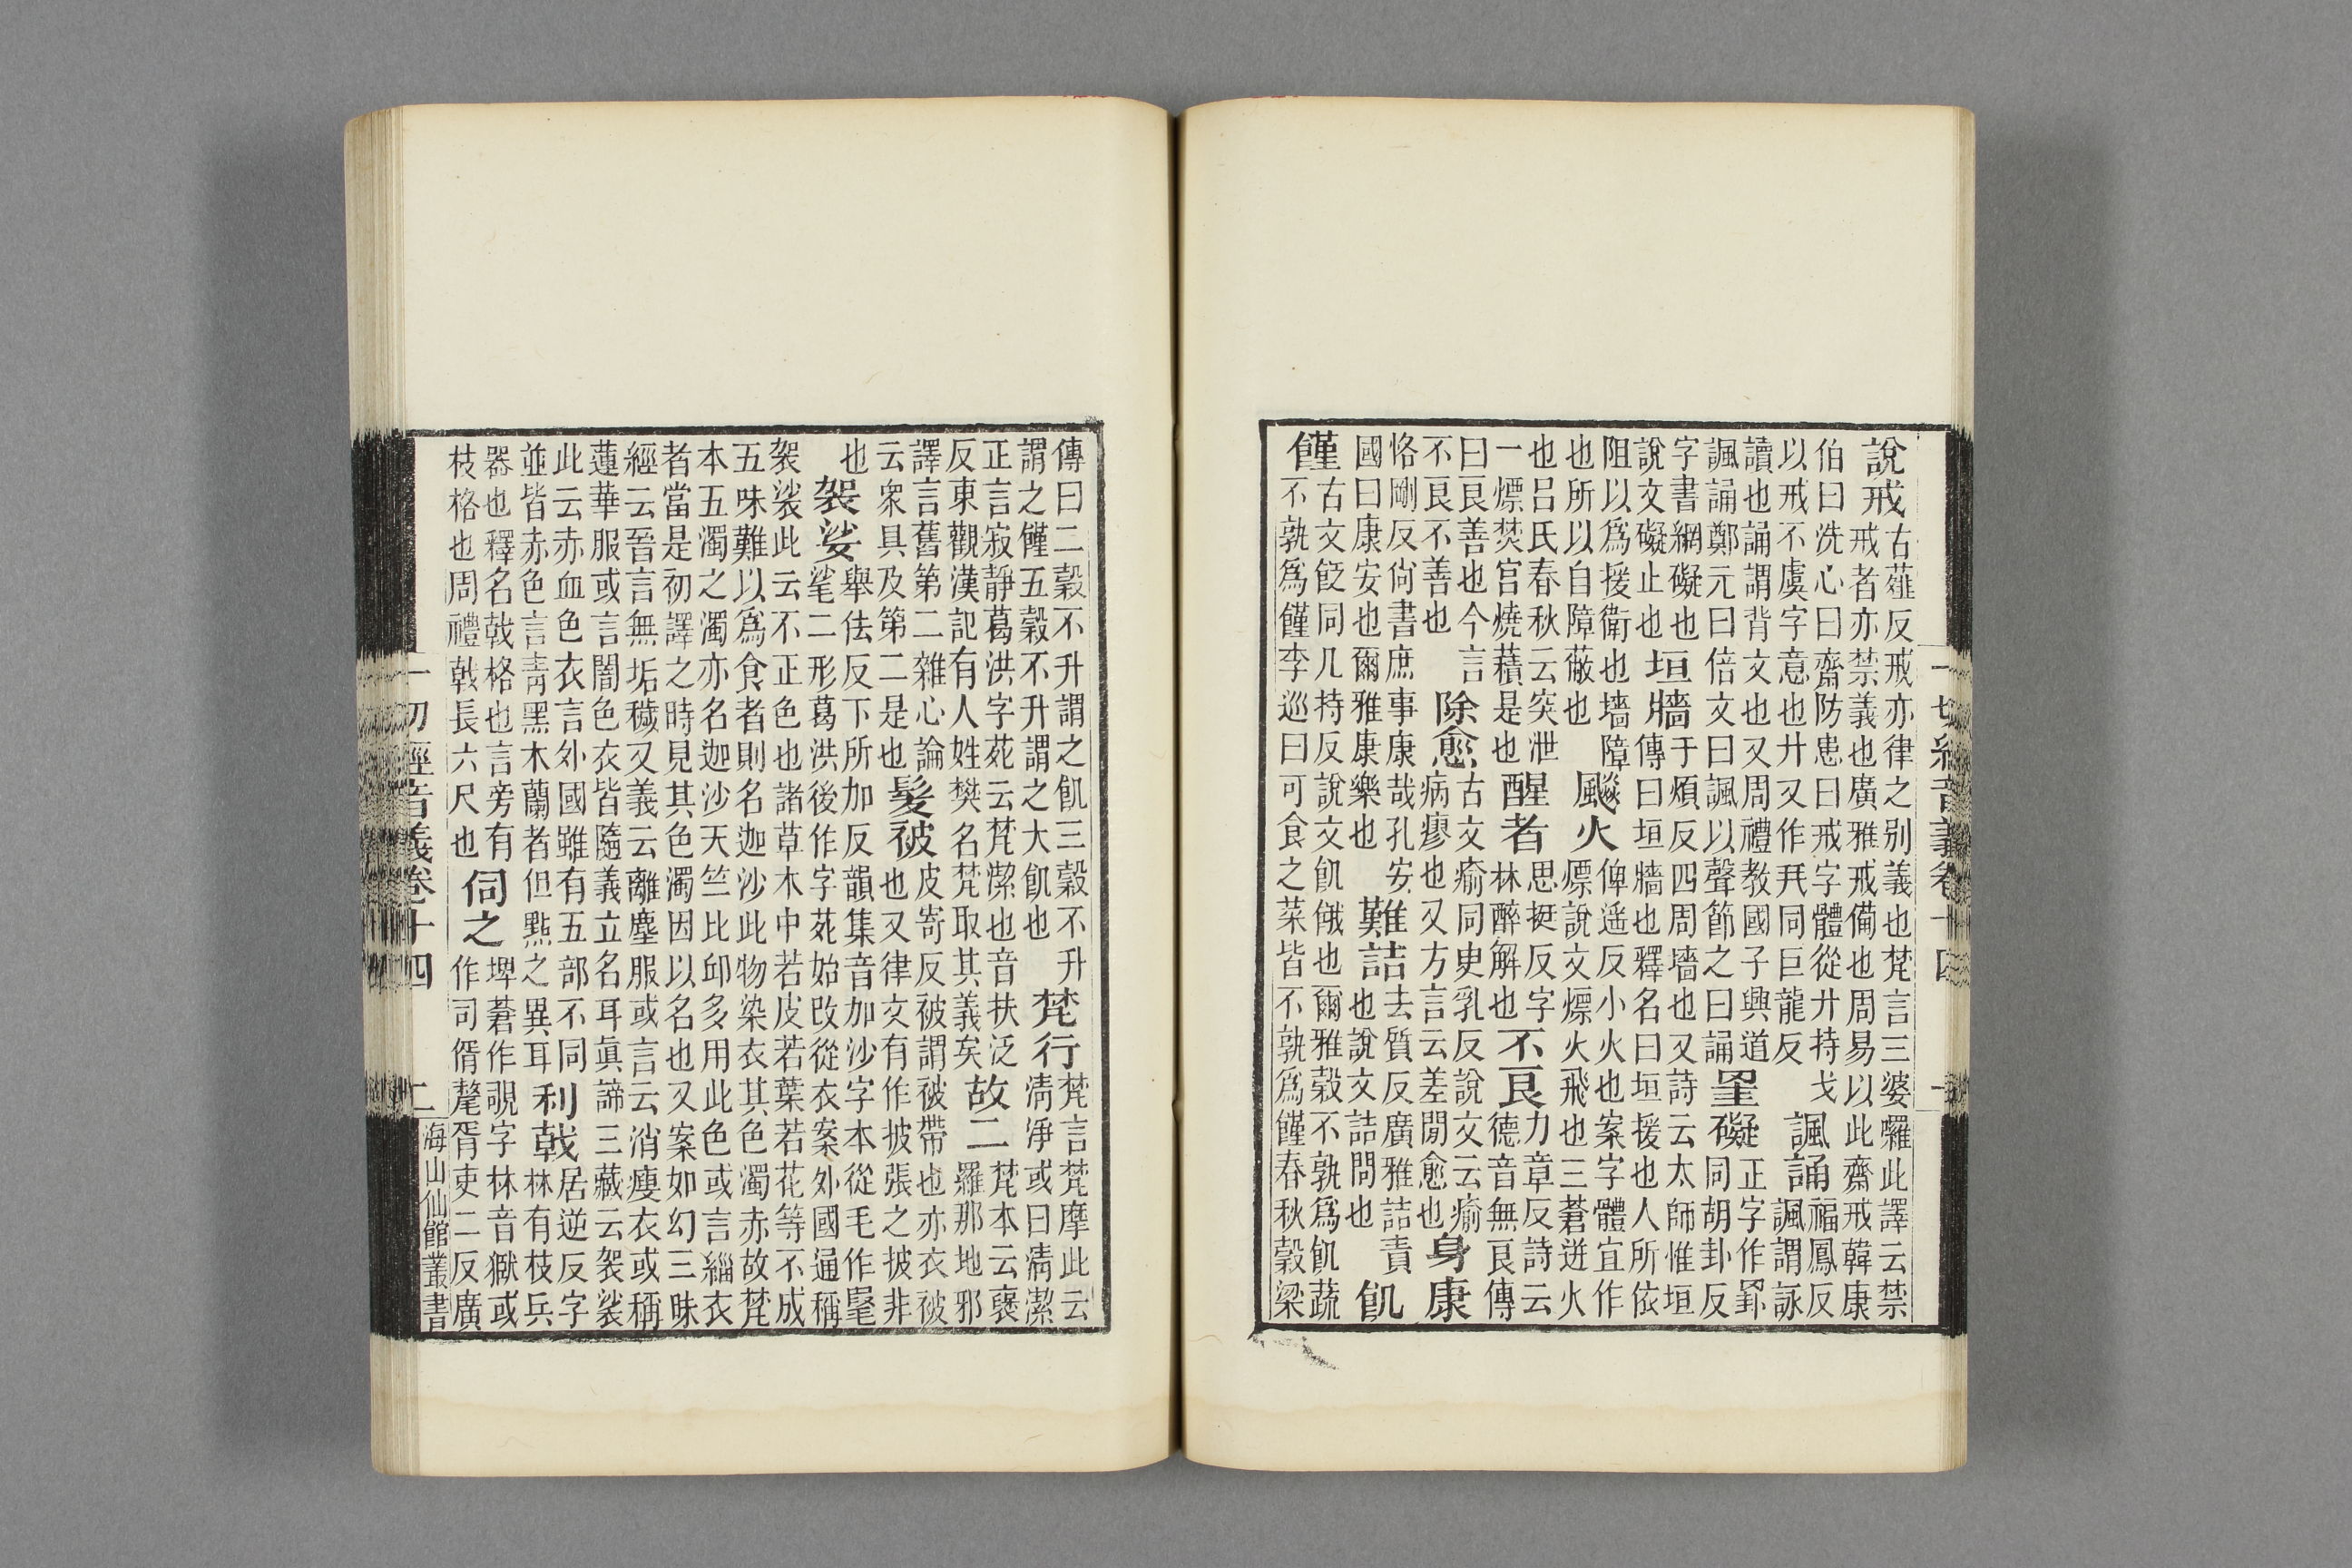 說戒
古薤反戒亦律之別義也梵言三婆囉此譯云禁
戒者亦禁義也廣雅戒備也周易以此齋戒韓康
伯曰洗心曰齋防患曰戒字體從廾持戈
以戒不虞字意也廾又作㒱同巨龍反
諷誦
福鳳反
諷謂詠
讀也誦謂背文也又周禮教國子興道
諷誦鄭元曰倍文曰諷以聲節之曰誦
罣礙
正字作罫
同胡卦反
字書網礙也
說文礙止也
垣牆
于煩反四周墻也又詩云太師惟垣
傳曰垣牆也釋名曰垣援也人所依
阻以爲援衛也墻障
也所以自障蔽也
飈火
俾遥反小火也案字體宜作
熛說文熛火飛也三蒼迸火
也呂氏春秋云突泄
一熛焚宮燒積是也
醒者
思挺反字
林醉解也
不良
力章反詩云
德音無良傳
曰良善也今言
不良不善也
除愈
古文瘉同臾乳反說文云瘉
病瘳也又方言云差閒愈也
身康
恪剛反尙書庶事康哉孔安
國曰康安也爾雅康樂也
難詰
去質反廣雅詰責
也說文詰問也
飢
饉
古文飪同几持反說文飢餓也爾雅穀不孰爲飢蔬
不孰爲饉李巡曰可食之菜皆不孰爲饉春秋穀梁
一切經音義卷十四 一
傳曰二穀不升謂之飢三穀不升
謂之饉五穀不升謂之大飢也
梵行
梵言梵摩此云
清淨或曰清潔
正言寂靜葛洪字苑云梵潔也音扶泛
反東觀漢記有人姓樊名梵取其義矣
故二
梵本云裒
羅那地邪
譯言舊第二雜心論
云衆具及第二是也
髮被
皮寄反被謂被帶也亦衣被
也又律文有作披張之披非
也
袈裟
舉佉反下所加反韻集音加沙字本從毛作㲚
毠二形葛洪後作字苑始改從衣案外國通稱
袈裟此云不正色也諸草木中若皮若葉若花等不成
五味難以爲食者則名迦沙此物染衣其色濁赤故梵
本五濁之濁亦名迦沙天竺比邱多用此色或言緇衣
者當是初譯之時見其色濁因以名也又案如幻三昧
經云晉言無垢穢又義云離塵服或言云消瘦衣或稱
蓮華服或言闇色衣皆隨義立名耳眞諦三藏云袈裟
此云赤血色衣言外國雖有五部不同
並皆赤色言青黑木蘭者但點之異耳
利戟
居逆反字
林有枝兵
器也釋名戟格也言旁有
枝格也周禮戟長六尺也
伺之
埤蒼作覗字林音獄或
作司偦髦胥吏二反廣
一切經音義卷十四 二
海山仙館叢書